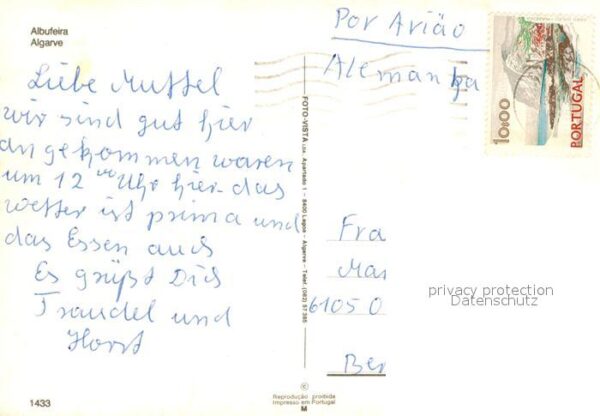 Albufeira
Algarve
Liebe Muttel
wir sind gut hier
angekommen waren
um 12 00 Uhr hier das
Wetter ist prima und
das Essen auch
Es grüßt Dich
Traudel und
Horst
1433
FOTO-VISTA Lda. Apartado 1 - 8400 Lagoa - Algarve - Telef. (082) 57 385
©
Reprodução proibida
Impresso em Portugal
M
Por Avião
Alemanha
10$00
PORTUGAL
Fra
Mar
61050
Ber
privacy protection
Datenschutz